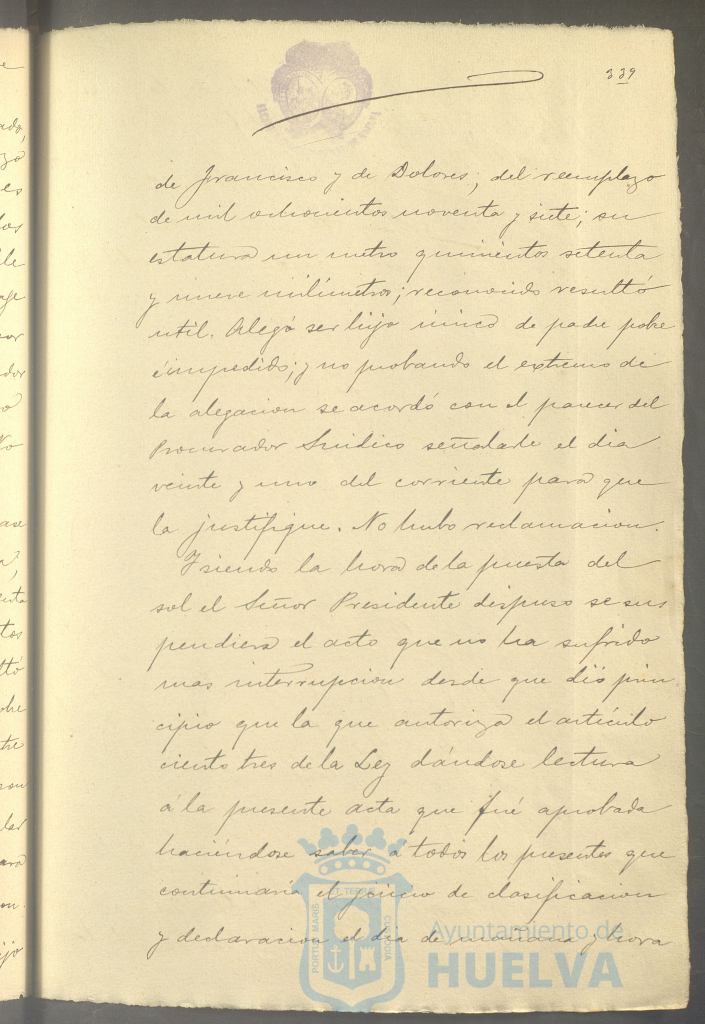 339
de Francisco y de Dolores; del reemplazo
de mil ochocientos noventa y siete; su
estatura un metro quinientos setenta
y nueve milímetros; reconocido resultó
util. Alegó ser hijo único de padre pobre
é impedido; y no probando el extremo de
la alegacion se acordó con el parecer del
Procurador Síndico señalarle el dia
veinte y uno del corriente para que
la justifique. No hubo reclamacion.
Y siendo la hora de la puesta del
sol el Señor Presidente dispuso se sus
pendiera el acto que no ha sufrido
mas interrupcion desde que dió prin
cipio que la que autoriza el artículo
ciento tres de la Ley dándose lectura
á la presente acta que fué aprobada
haciéndose saber a todos los presentes que
continuaria el juicio de clasificacion
y declaracion el dia de mañana y hora
PORTUS MARIS ET TERRAE CUSTODIA
Ayuntamiento de
HUELVA